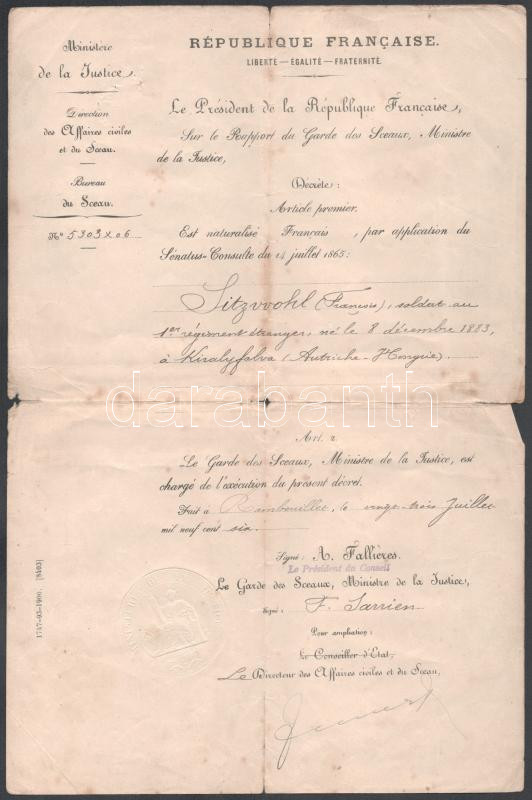 Ministère
de la Justice.
Direction
des Affaires civiles
et du Sceau.
Bureau
du Sceau.
N° 5303 x 06
RÉPUBLIQUE FRANÇAISE.
LIBERTÉ — ÉGALITÉ — FRATERNITÉ.
Le Président de la République Française,
Sur le Rapport du Garde des Sceaux, Ministre
de la Justice,
Décrète:
Article premier.
Est naturalisé Français, par application du
Sénatus-Consulte du 14 juillet 1865:
Sitzvvohl (François), soldat au
1er régiment étranger, né le 8 décembre 1883,
à Kiralyfalva (Autriche-Hongrie).
darabanth
Art. 2.
Le Garde des Sceaux, Ministre de la Justice, est
chargé de l'exécution du présent décret.
Fait à Rambouillet, le vingt-trois Juillet
mil neuf cent six.
Signé: A. Fallières.
Le Président du Conseil
Le Garde des Sceaux, Ministre de la Justice,
Signé: F. Sarrien
Pour ampliation:
Le Conseiller d'État,
Le Directeur des Affaires civiles et du Sceau,
1747-93-1900. [8403]